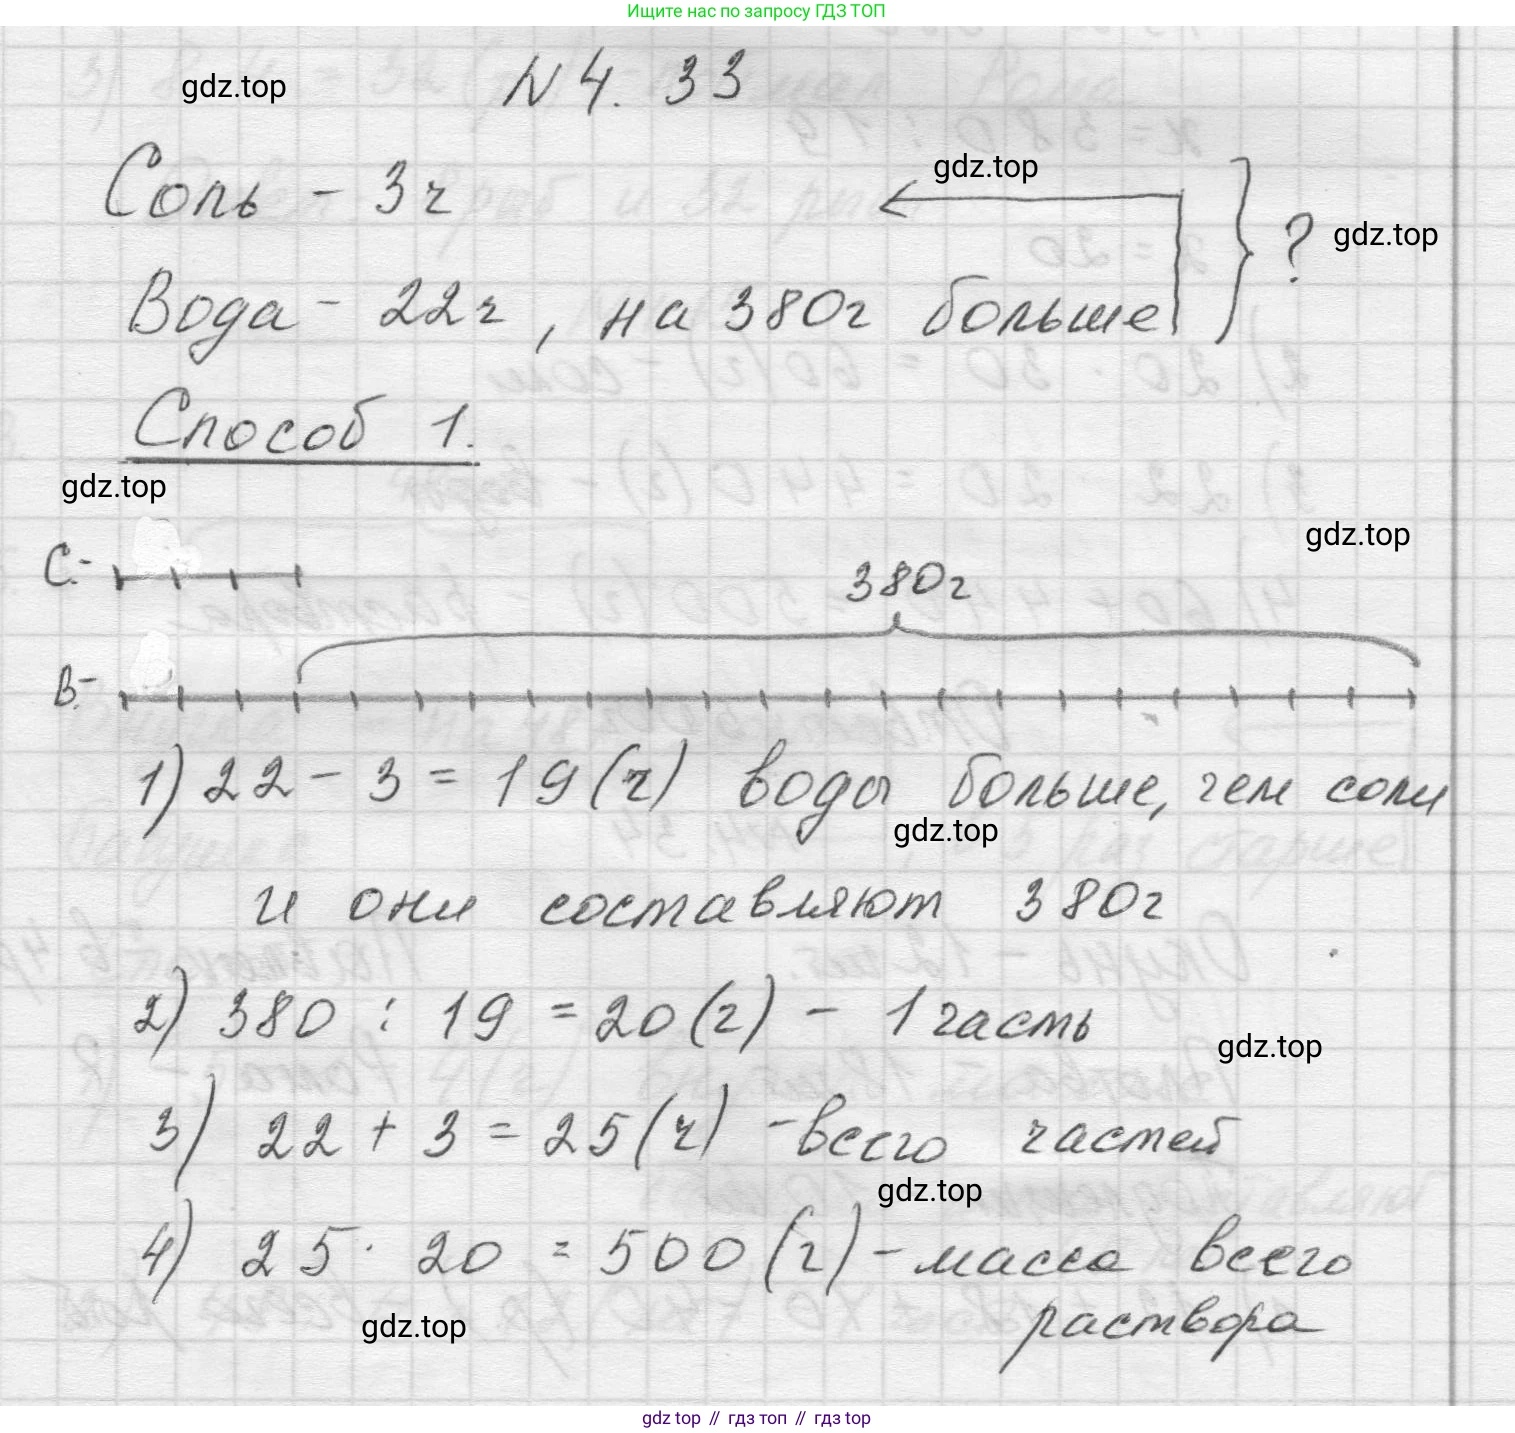 Ищите нас по запросу ГДЗ ТОП
gdz.top
N 4. 33
gdz.top
Соль - 3ч
?
gdz.top
Вода - 22ч, на 380г больше
Способ 1.
gdz.top
gdz.top
С.-
380г
В.-
1) 22 - 3 = 19(ч) воды больше, чем соли
gdz.top
и они составляют 380г
2) 380 : 19 = 20(г) - 1 часть
gdz.top
3) 22 + 3 = 25(ч) - всего частей
gdz.top
4) 25 · 20 = 500(г) - масса всего
раствора
gdz.top
gdz top // гдз топ // гдз top